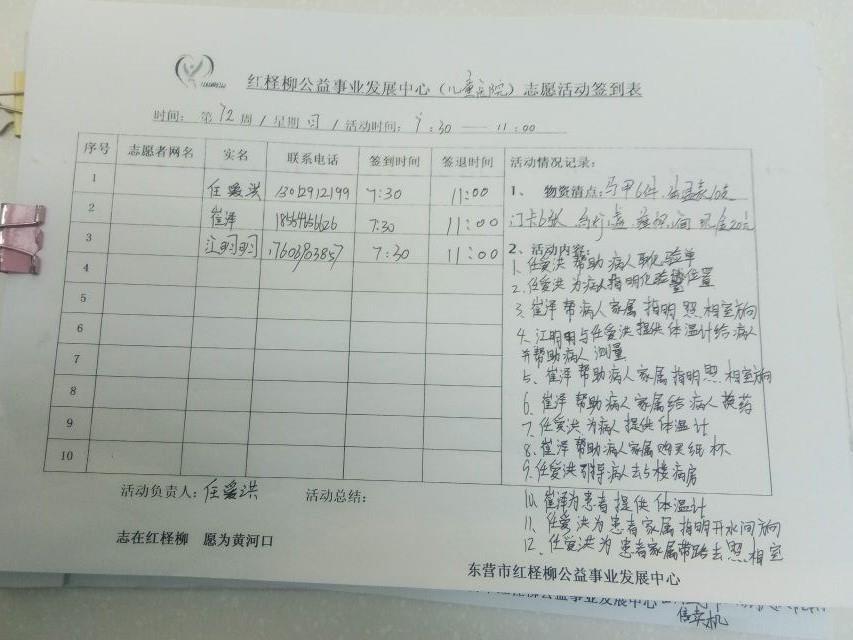 红柽柳公益事业发展中心(儿童医院)志愿活动签到表
时间: 第 72 周 / 星期 日 / 活动时间: 7:30 — 11:00
序号 志愿者网名 实名 联系电话 签到时间 签退时间 活动情况记录:
1 任爱洪 13012912199 7:30 11:00
1、 物资清点: 马甲6件
2 崔泽 7:30 11:00
门卡6张 现金20元
3 江明明 17606903857 7:30 11:00
2、活动内容:
4
1. 任爱洪 帮助病人取化验单
2. 任爱洪 为病人指明化验 位置
5
3. 崔泽帮病人家属指明照相室方向
6
4. 江明明与任爱洪提供体温计给病人
并帮助病人测量
7
5、崔泽帮助病人家属指明照相室方向
8
6. 崔泽帮助病人家属给病人换药
7. 任爱洪为病人提供体温计
9
8. 崔泽帮助病人家属购买纸杯
10
9. 任爱洪引导病人去5楼病房
活动负责人: 任爱洪 活动总结:
10. 崔泽为患者提供体温计
11. 任爱洪为患者家属指明开水间方向
志在红柽柳 愿为黄河口
12. 任爱洪为患者家属带路去照相室
东营市红柽柳公益事业发展中心
红柽柳公益事业发展中心
售卖机